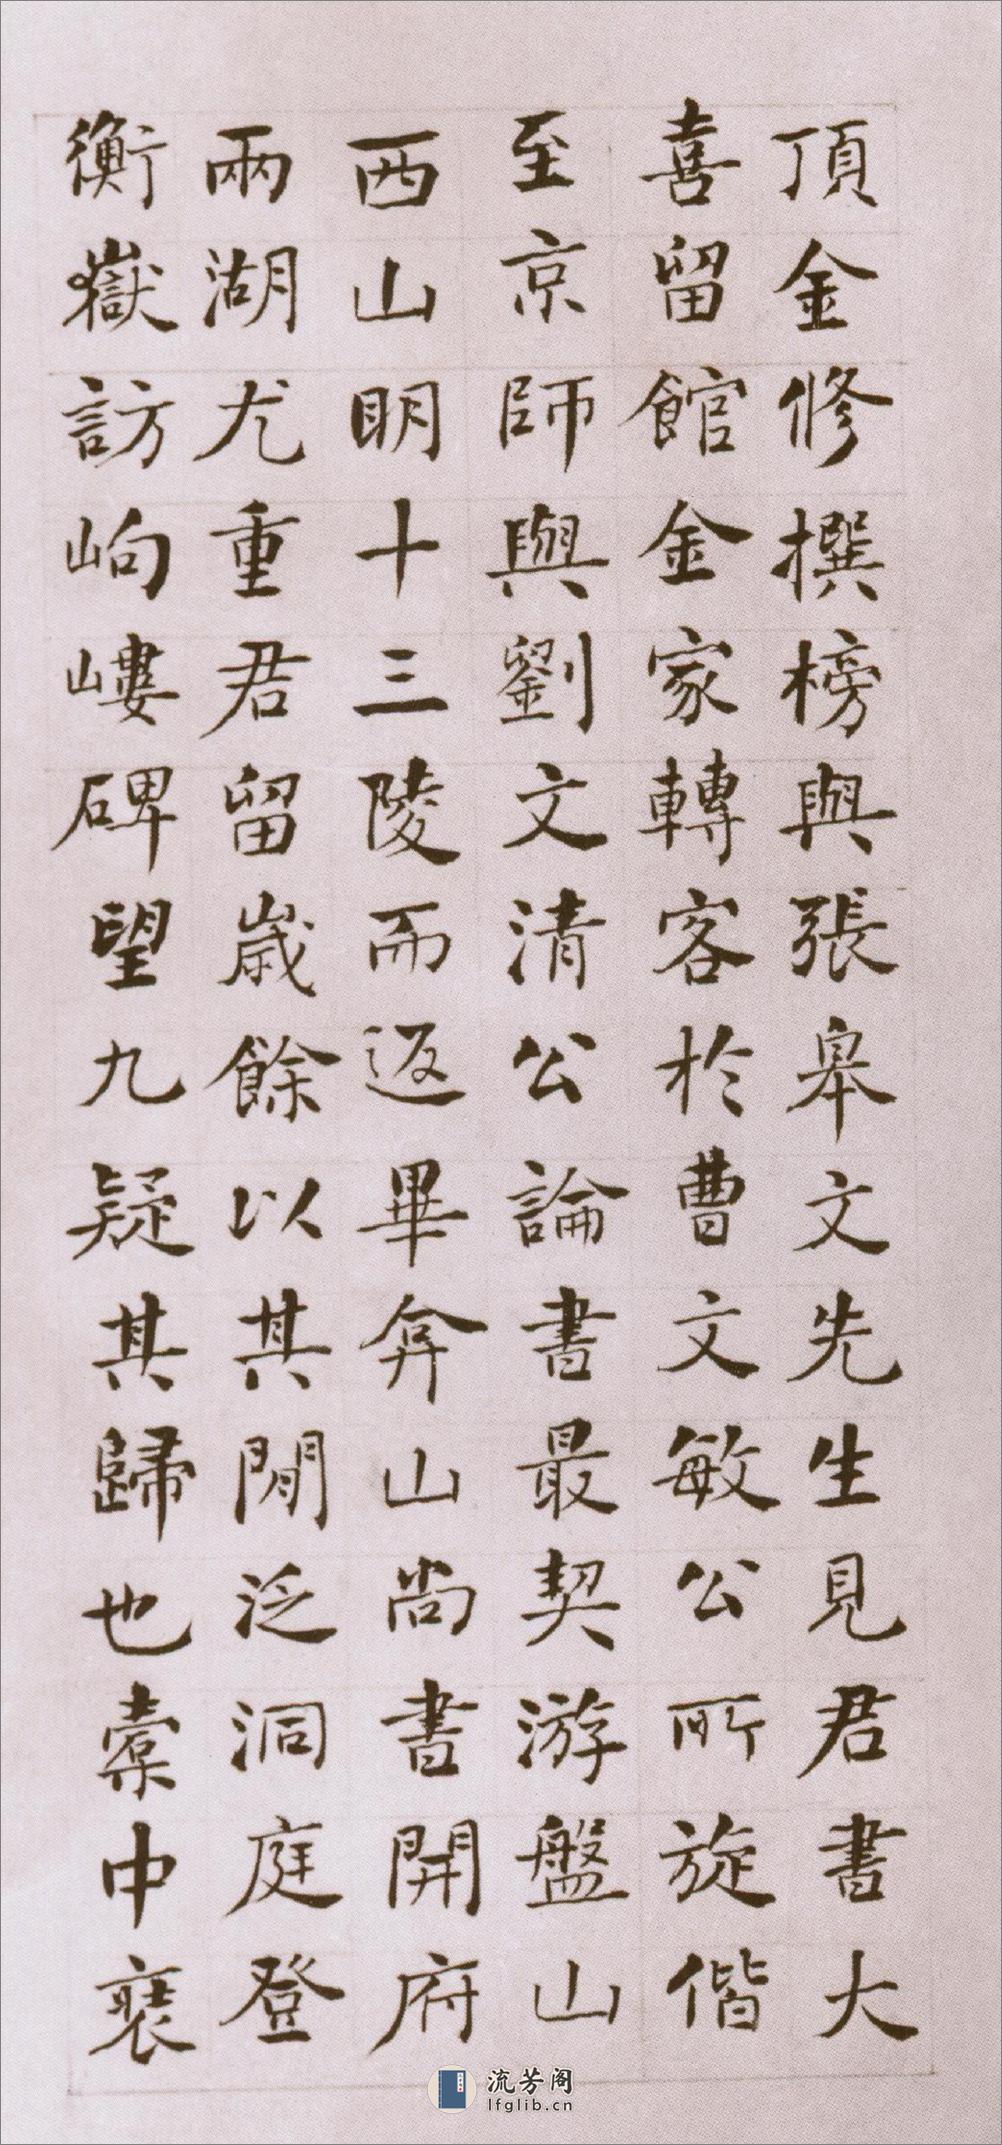 頂金修撰榜與張皋文先生見君書大
喜留館金家轉客於曹文敏公所旋偕
至京師與劉文清公論書最契游盤山
西山明十三陵而返畢弇山尚書開府
兩湖尤重君留歲餘以其閒泛洞庭登
衡嶽訪岣嶁碑望九疑其歸也橐中裘
流芳阁
lfglib.cn